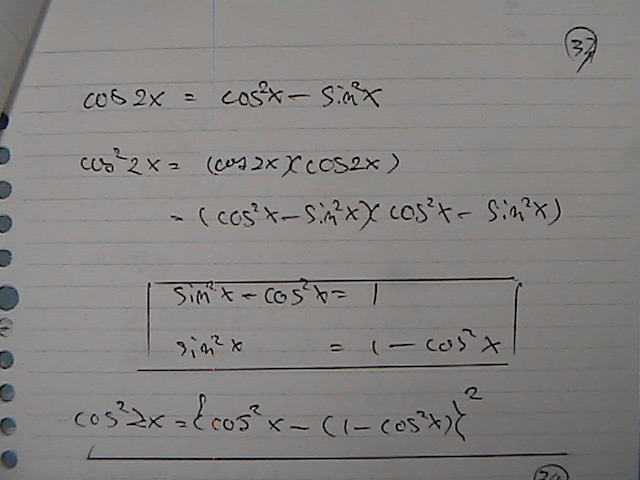 37
cos 2x = cos²x - sin²x
cos²2x = (cos2x)(cos2x)
= (cos²x - sin²x)(cos²x - sin²x)
sin²x - cos²x = 1
sin²x = 1 - cos²x
cos²2x = {cos²x - (1 - cos²x)}²